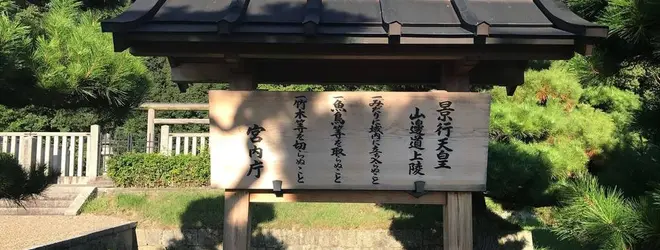 景行天皇
山邊道上陵
一、みだりに域内に立入らぬこと
一、魚鳥等を取らぬこと
一、竹木等を切らぬこと
宮内庁